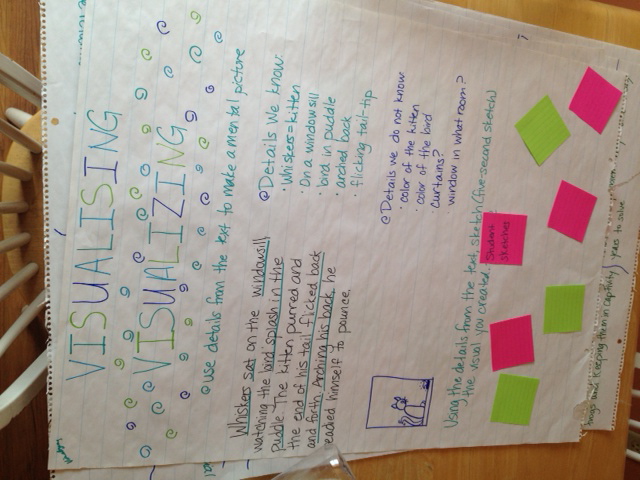 VISUALISING
VISUALIZING
use details from the text to make a mental picture
Whiskers sat on the windowsill
watching the bird splash in the
puddle. The kitten purred and
the end of his tail flicked back
and forth. Arching his back, he
readied himself to pounce.
Details we know:
· Whiskers = kitten
· On a windowsill
· bird in puddle
· arched back
· flicking tail-tip
Details we do not know:
· color of the kitten
· color of the bird
· Curtains?
· window in what room?
Using the details from the text, sketch (five-second sketch)
the visual you created.
Student
sketches
things and keeping them in captivity
years to solve